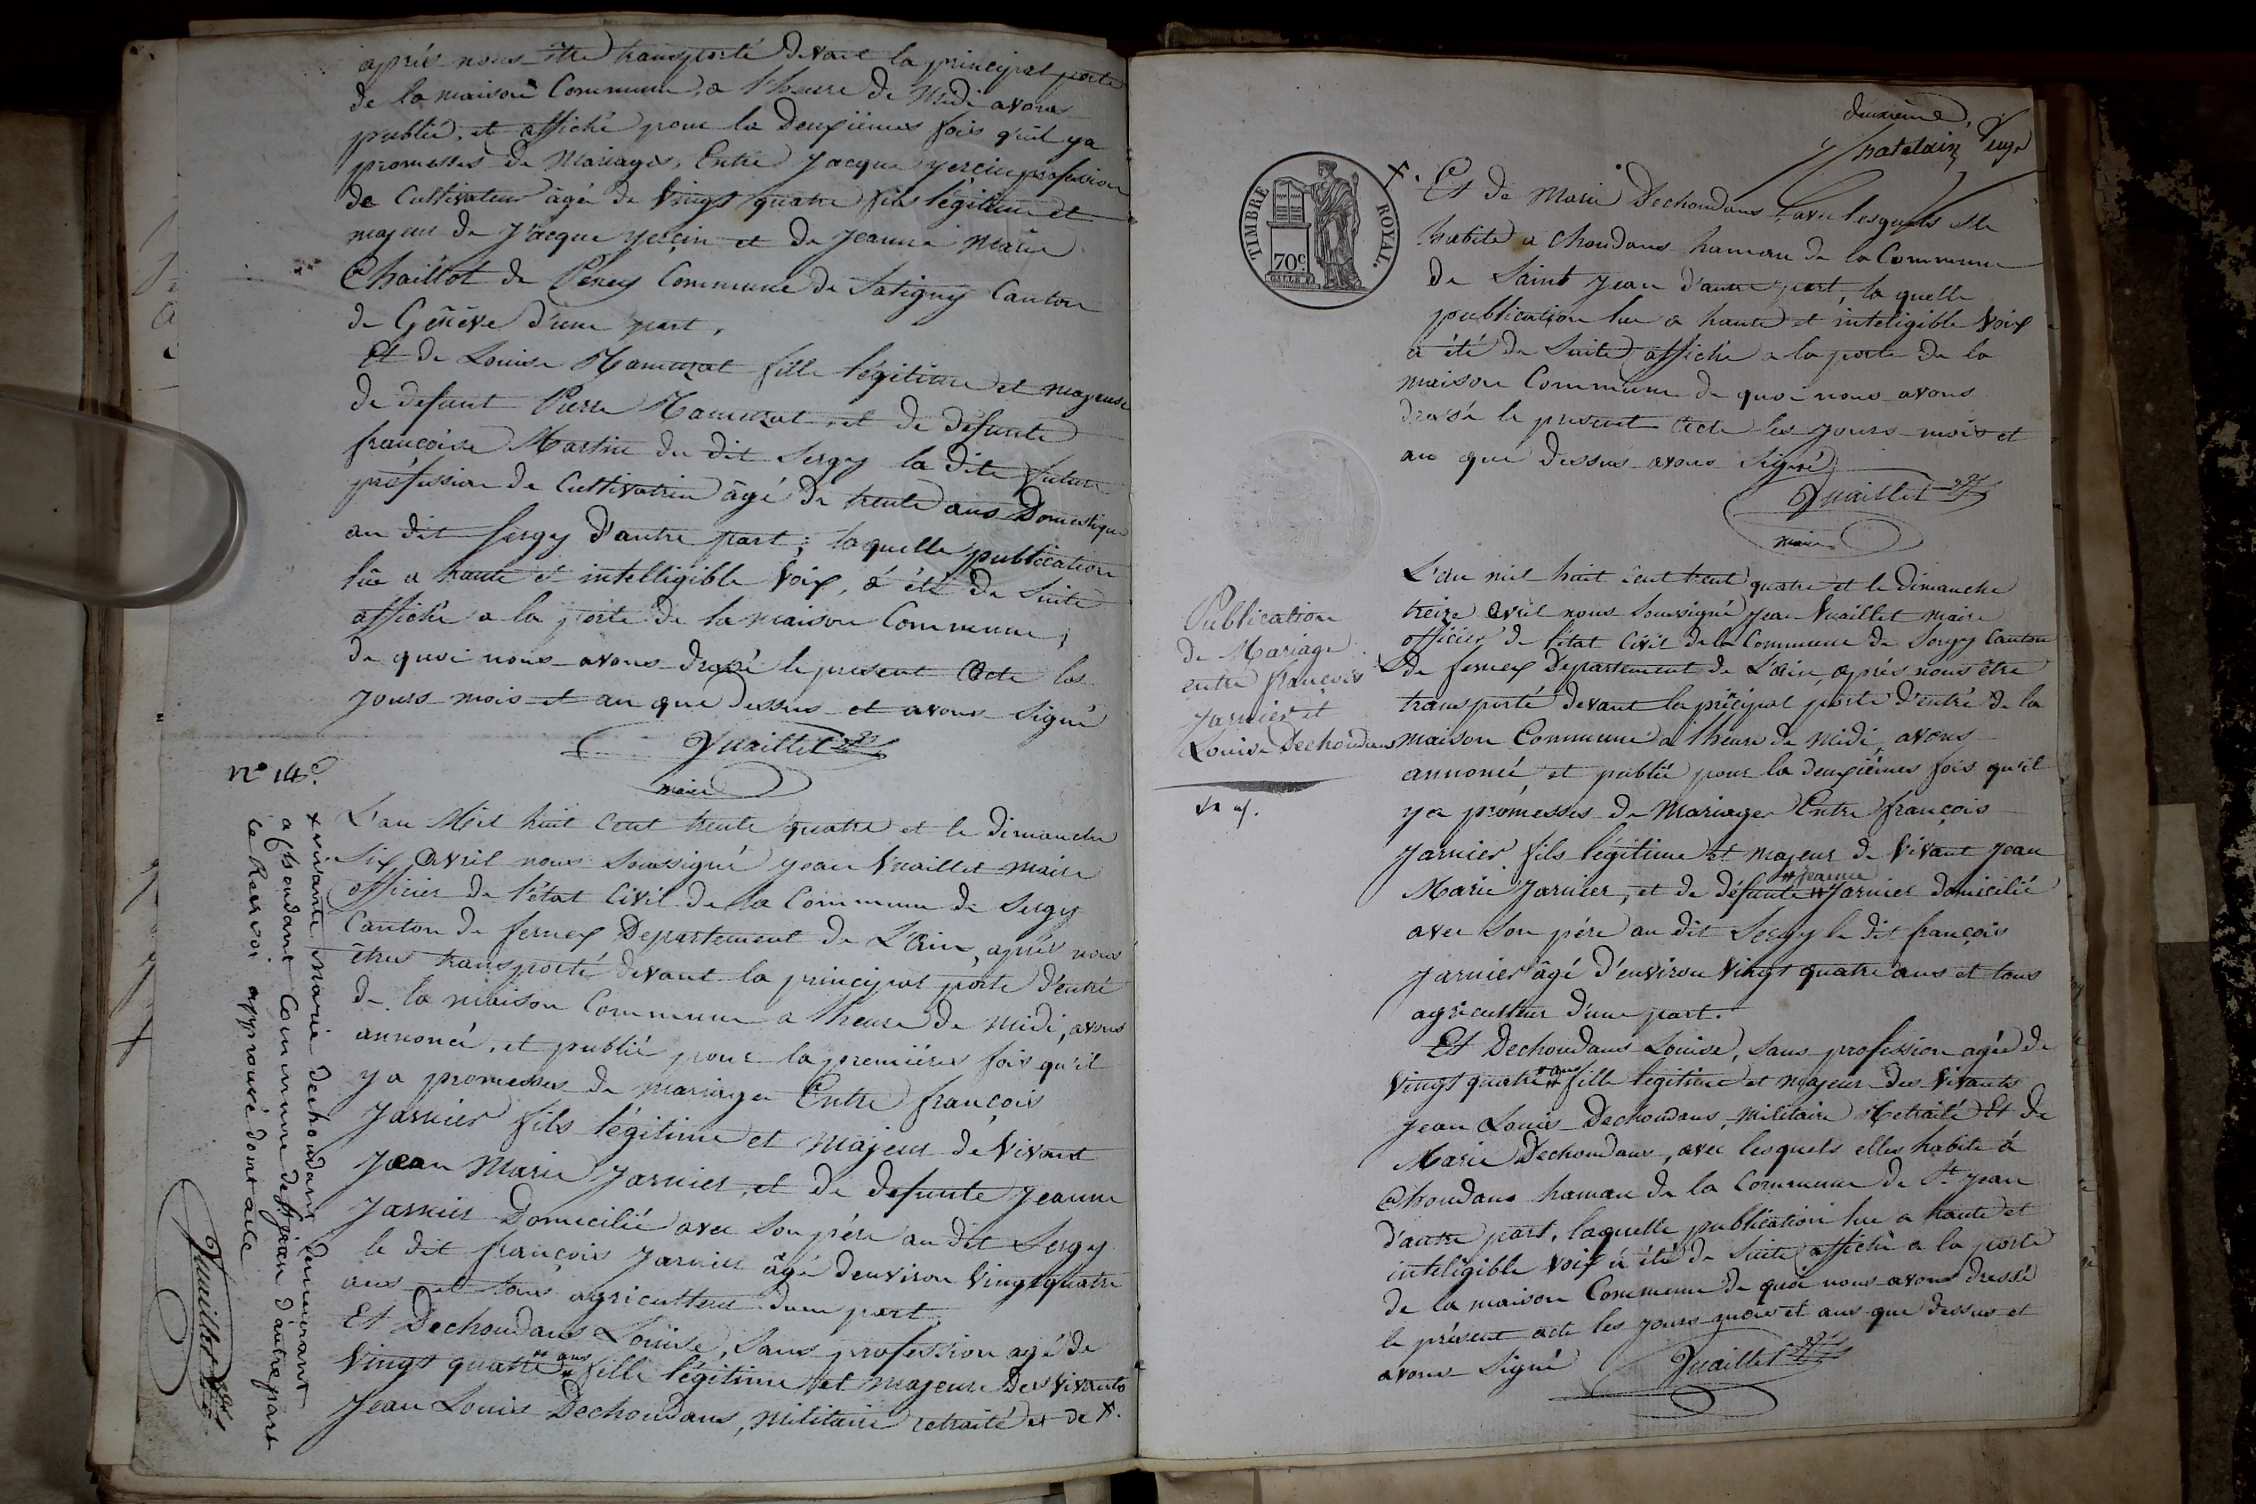 après nous être transporté devant la principal porte
de la maison Commune, a l'heure de Midi avons
publié, et affiché pour la deuxiémes fois qu'il ya
promesses de Mariages, Entre Jacque yersin profession
de Cultivateur âgé de Vingt quatre fils légitime et
majeur de Jacque yersin et de Jeanne Marie
Chaillot de Peney Commune de Satigny Canton
de Genève d'une part,
Et de Louise Hamuzat fille légitime et majeure
de defunt Pierre Hamuzat et de défunte
françoise Martin du dit Sergy la dite future
profession de Cultivatrice âgé de trente ans Domestique
au dit Sergy d'autre part; laquelle publication
lûe a haute et intelligible Voix, a été de Suite
affiché a la porte de la maison Commune;
de quoi nous avons dressé le present Acte les
jours mois et an que dessus et avons Signé
Vuaillet
maire
n° 14.
L'an Mil huit Cent trente quatre et le dimanche
Six Avril nous Soussigné Jean Vuaillet Maire
officier de l'état Civil de la Commune de Sergy
Canton de ferney Departement de L'Ain, après nous
êtres transporté devant la principal porte d'entré
de la maison Commune a l'heure de midi, avons
annoncé, et publié pour la premiéres fois qu'il
y a promesses de mariages Entre françois
Jarnier fils légitime et majeur de Vivant
Jean Marie Jarnier, et de defunte Jeanne
Jarnier Domicilié avec Son père au dit Sergy
le dit françois Jarnier âgé d'environ Vingt quatre
ans et tous agriculteur d'une part,
Et Dechoudans Louise, Sans profession agé de
Vingt quatre ans fille légitime et majeure Des Vivants
Jean Louis Dechoudans, militaire retraité et de X.
x vivante Marie dechoudans demeurant
a Choudans Commune de St jean d'autre part
le Renvoi approuvé dont acte
Vuaillet
deuxième
Chatelain Juge
TIMBRE ROYAL.
70c
X. Et de Marie Dechoudans avec lesquels elle
habite a Choudans hameau de la Commune
de Saint Jean d'autre part, la quelle
publication lue a haute et inteligible Voix
a été de Suite affiché a la porte de la
maison Commune de quoi nous avons
dressé le present Acte les jours mois et
an que dessus avons Signé
Vuaillet
maire
Publication
de Mariage
entre françois
Jarnier et
Louise Dechoudans
L'an mil huit Cent trent quatre et le Dimanche
treize Avril nous Soussigné Jean Vuaillet maire
officier de l'état Civil de la Commune de Sergy Canton
de ferney Departement de L'ain, après nous être
transporté devant la principal porte d'entré de la
maison Commune a l'heure de midi, avons
annoncé et publié pour la deuxiémes fois qu'il
ya promesses de Mariage Entre françois
Jarnier fils légitime et majeur de Vivant Jean
Marie Jarnier, et de défunte Jeanne Jarnier domicilié
avec Son père au dit Sergy le dit françois
Jarnier âgé d'environ Vingt quatre ans et tous
agriculteur d'une part.
Et Dechoudans Louise, Sans profession agée de
Vingt quatre ans fille légitime et majeur des Vivants
Jean Louis Dechoudans, militaire Retraité Et de
Marie Dechoudans, avec lesquels elles habite à
Choudans hamau de la Commune de St Jean
d'autre part, laquelle publication lue a haute et
inteligible Voix a été de Suite affiché a la porte
de la maison Commune de quoi nous avons dressé
le présent acte les jours mois et ans que dessus et
avons Signé Vuaillet